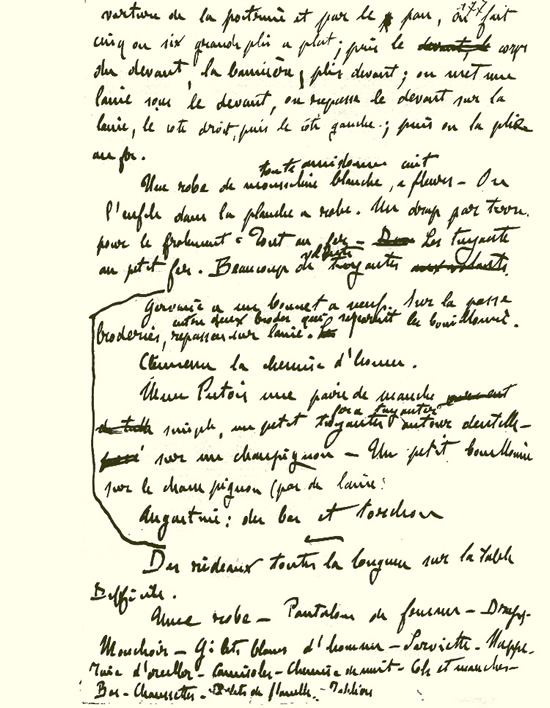 verture de la poitrine et par le pan, on fait
cinq ou six grands plis a plat; puis le devant, le corps
du devant, la bannière, plis devant; on met une
laine sous le devant, on repasse le devant sur la
laine, le coté droit, puis le coté gauche; puis on la plie
au fer.
toute amidonne cuit
Une robe de mousseline blanche, a fleurs - On
l'enfile dans la planche a robe. Un drap par terre.
pour le frolement - Tout au fer - Les tuyauté
au petit fer. Beaucoup de volants tuyautés aux volants
Gervaise a un bonnet a neuf. Sur la passe
entre deux brodés qui séparent les bouillonné.
broderies, repasser sur laine.
Clémence la chemise d'homme.
Mme Putois une paire de manche
fer a tuyauter
simple, un petit tuyauté autour dentelle -
sur un champignon - Un petit bouillonné
sur le champignon (pas de laine.
Augustine: des bas et torchons
Des rideaux toute la longueur sur la table
Difficile.
Une robe - Pantalons de femme - Draps -
Mouchoir - Gilets blancs d'homme - Serviette - Nappe -
Taie d'oreiller - Camisoles - Chemise de nuit - Cols et manches -
Bas - Chaussettes - Gilets de flanelle - Tabliers